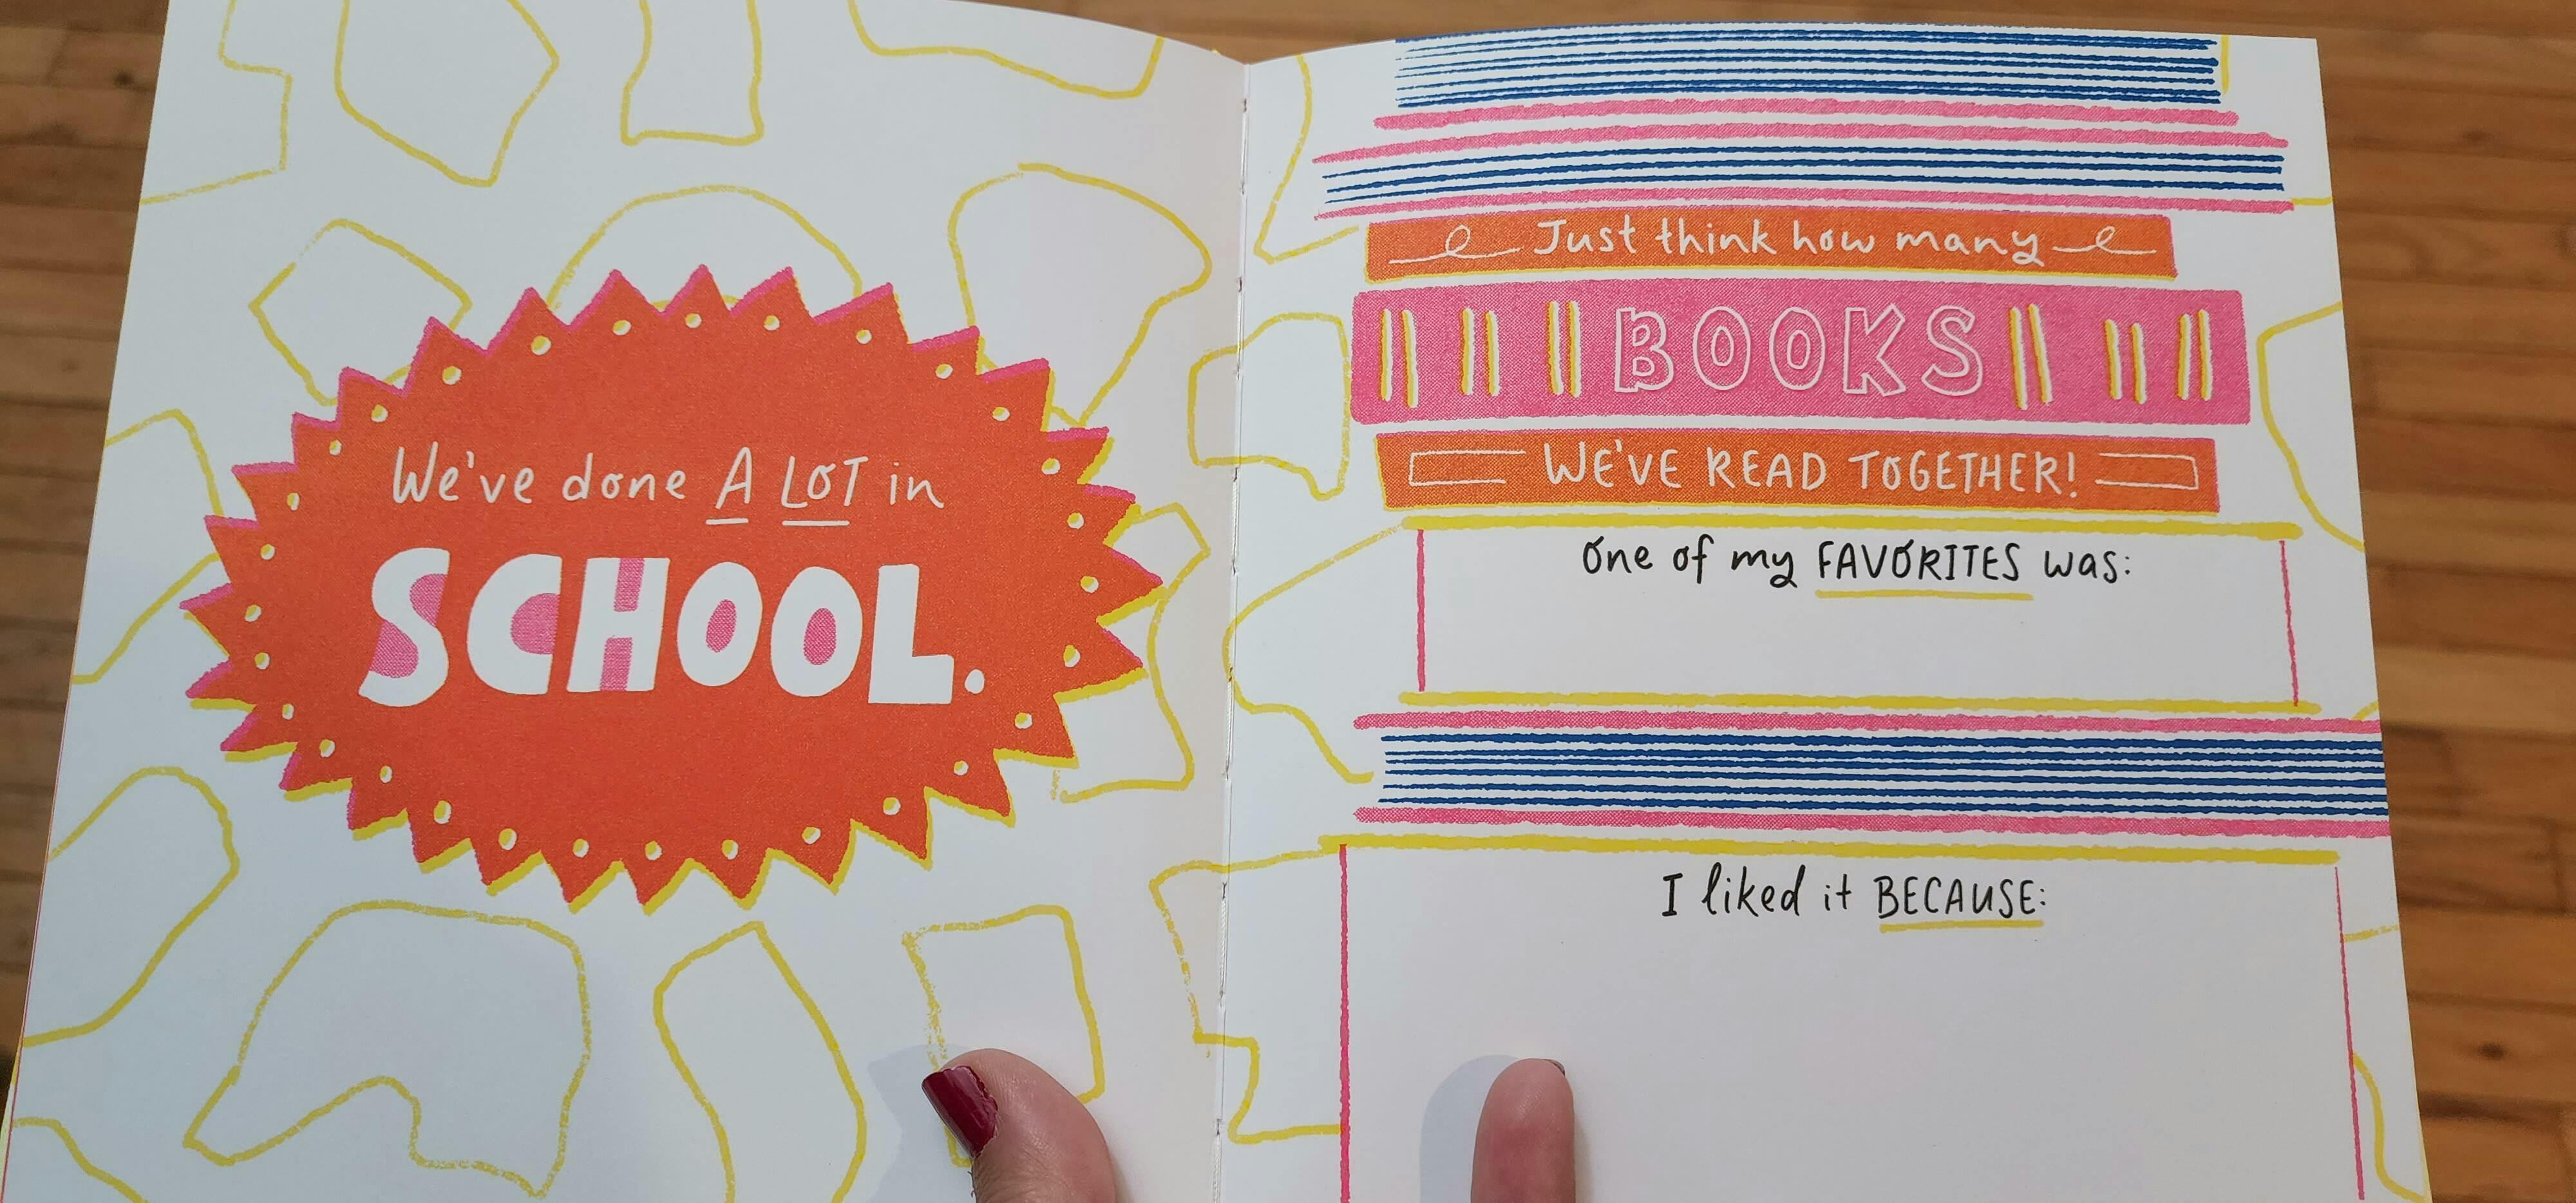 We've done A LOT in
SCHOOL.
Just think how many
BOOKS
WE'VE READ TOGETHER!
One of my FAVORITES was:
I liked it BECAUSE: